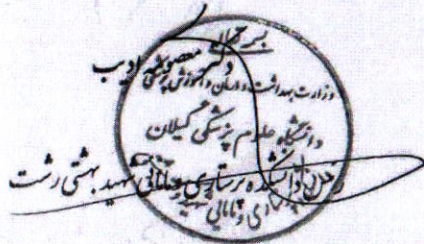 بسمه تعالی
دکتر معصومه ادیب
وزارت بهداشت، درمان و آموزش پزشکی
دانشگاه علوم پزشکی گیلان
دانشکده پرستاری و مامایی شهید بهشتی رشت
پرستاری و مامایی شهید